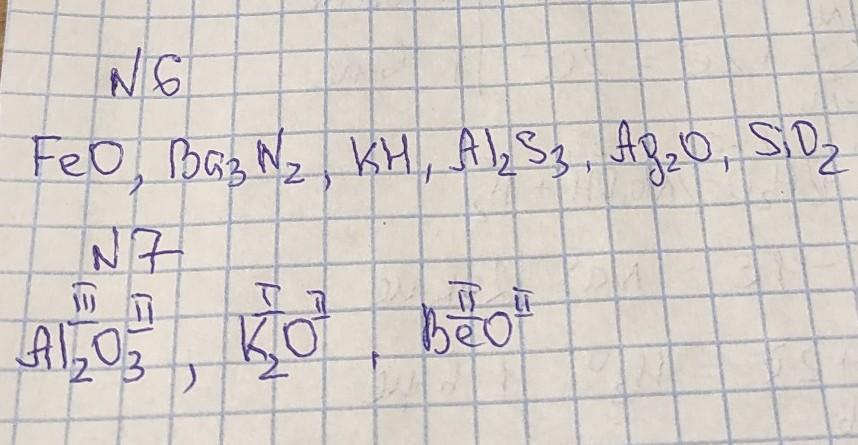 N6
FeO, Ba₃N₂, KH, Al₂S₃, Ag₂O, SiO₂
N7
Al₂ᴵᴵᴵO₃ᴵᴵ, K₂ᴵOᴵᴵ, BeᴵᴵOᴵᴵ